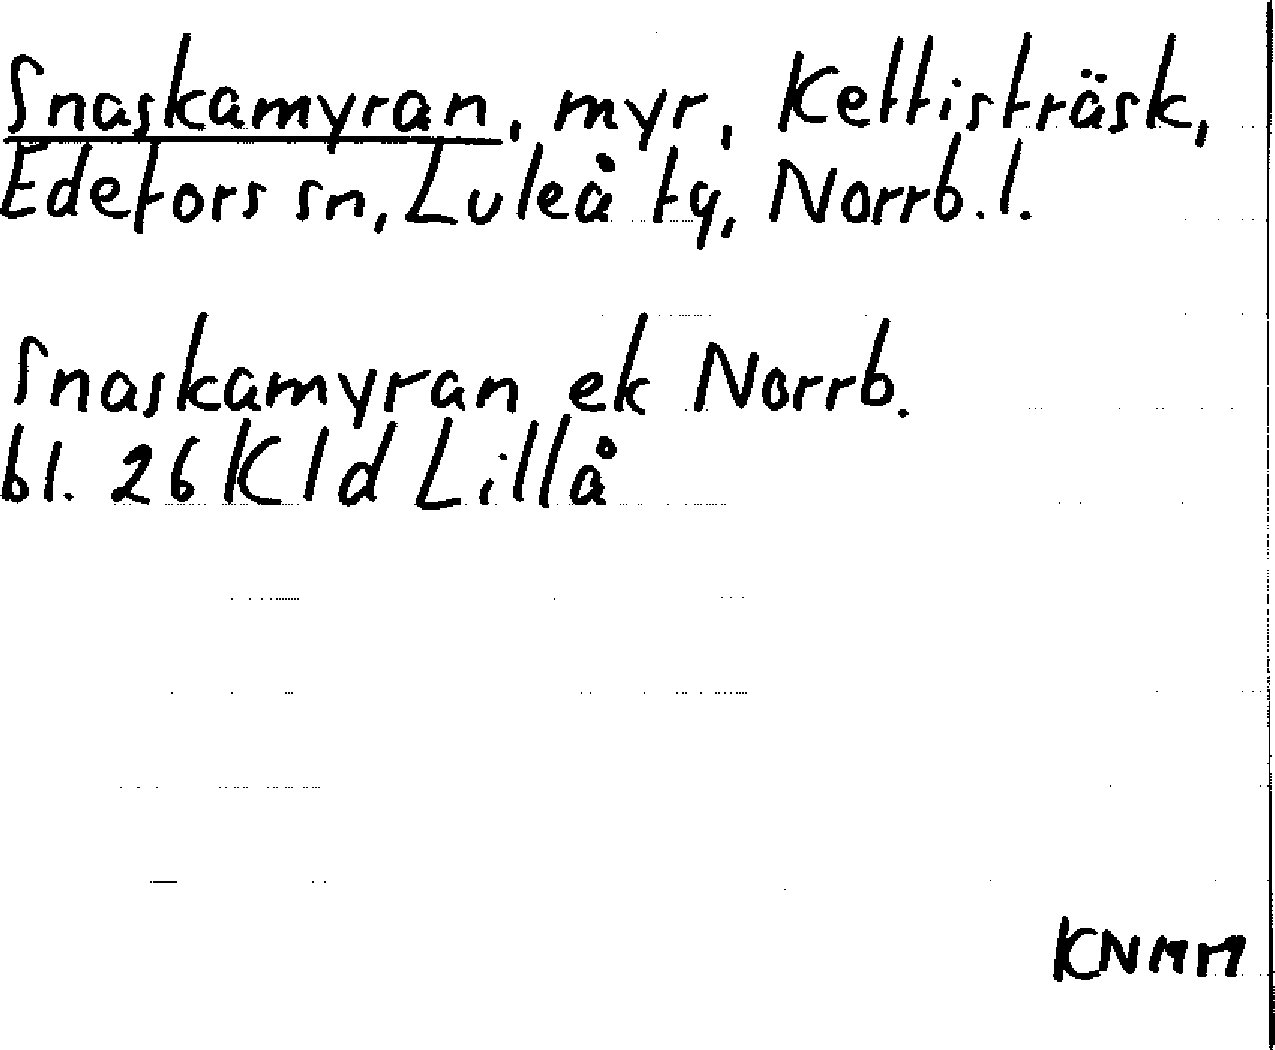 Snaskamyran, myr, Kettisträsk,
Edefors sn, Luleå tg, Norrb. l.
Snaskamyran ek Norrb.
bl. 26 K Id Lillå
KNMM